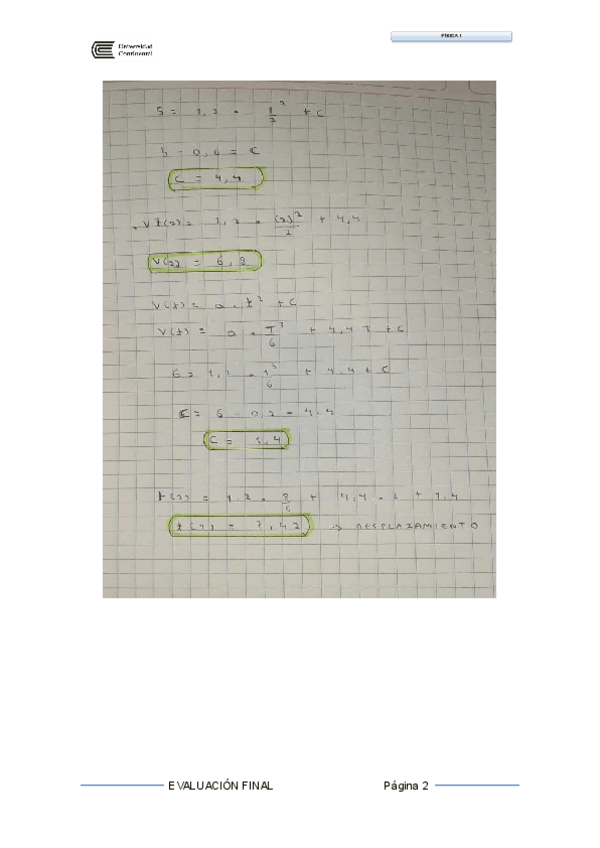 FÍSICA I
Universidad
Continental
5 = 1,2 · 1²/2 + C
5 - 0,6 = C
C = 4,4
V(2) = 1,2 · (2)²/2 + 4,4
V(2) = 6,8
V(t) = a · t² + C
V(t) = a · T³/6 + 4,4 T + C
6 = 1,2 · 1³/6 + 4,4 + C
C = 6 - 0,2 - 4,4
C = 1,4
= 1,2 · + 4,4 · + 1,4
→ DESPLAZAMIENTO
EVALUACIÓN FINAL Página 2